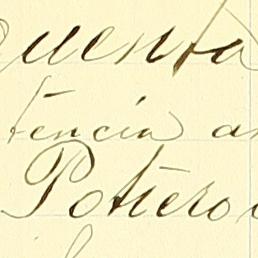 uenta
tencia a
Potrero